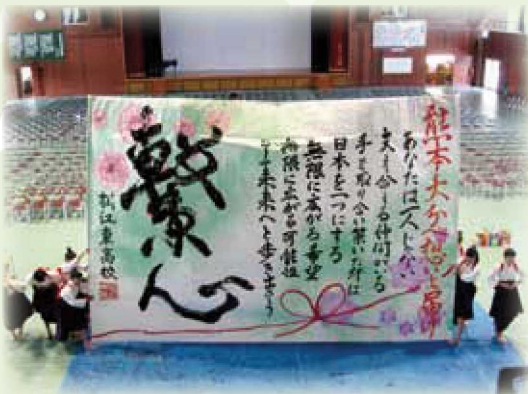 熊本・大分へ想いよ届け
あなたは一人じゃない
支え合える仲間がいる
手を取り合い繋いだ絆は
日本を一つにする
無限に広がる希望
無限に広がる可能性
未来へと歩き出そう
繋心
松江東高校